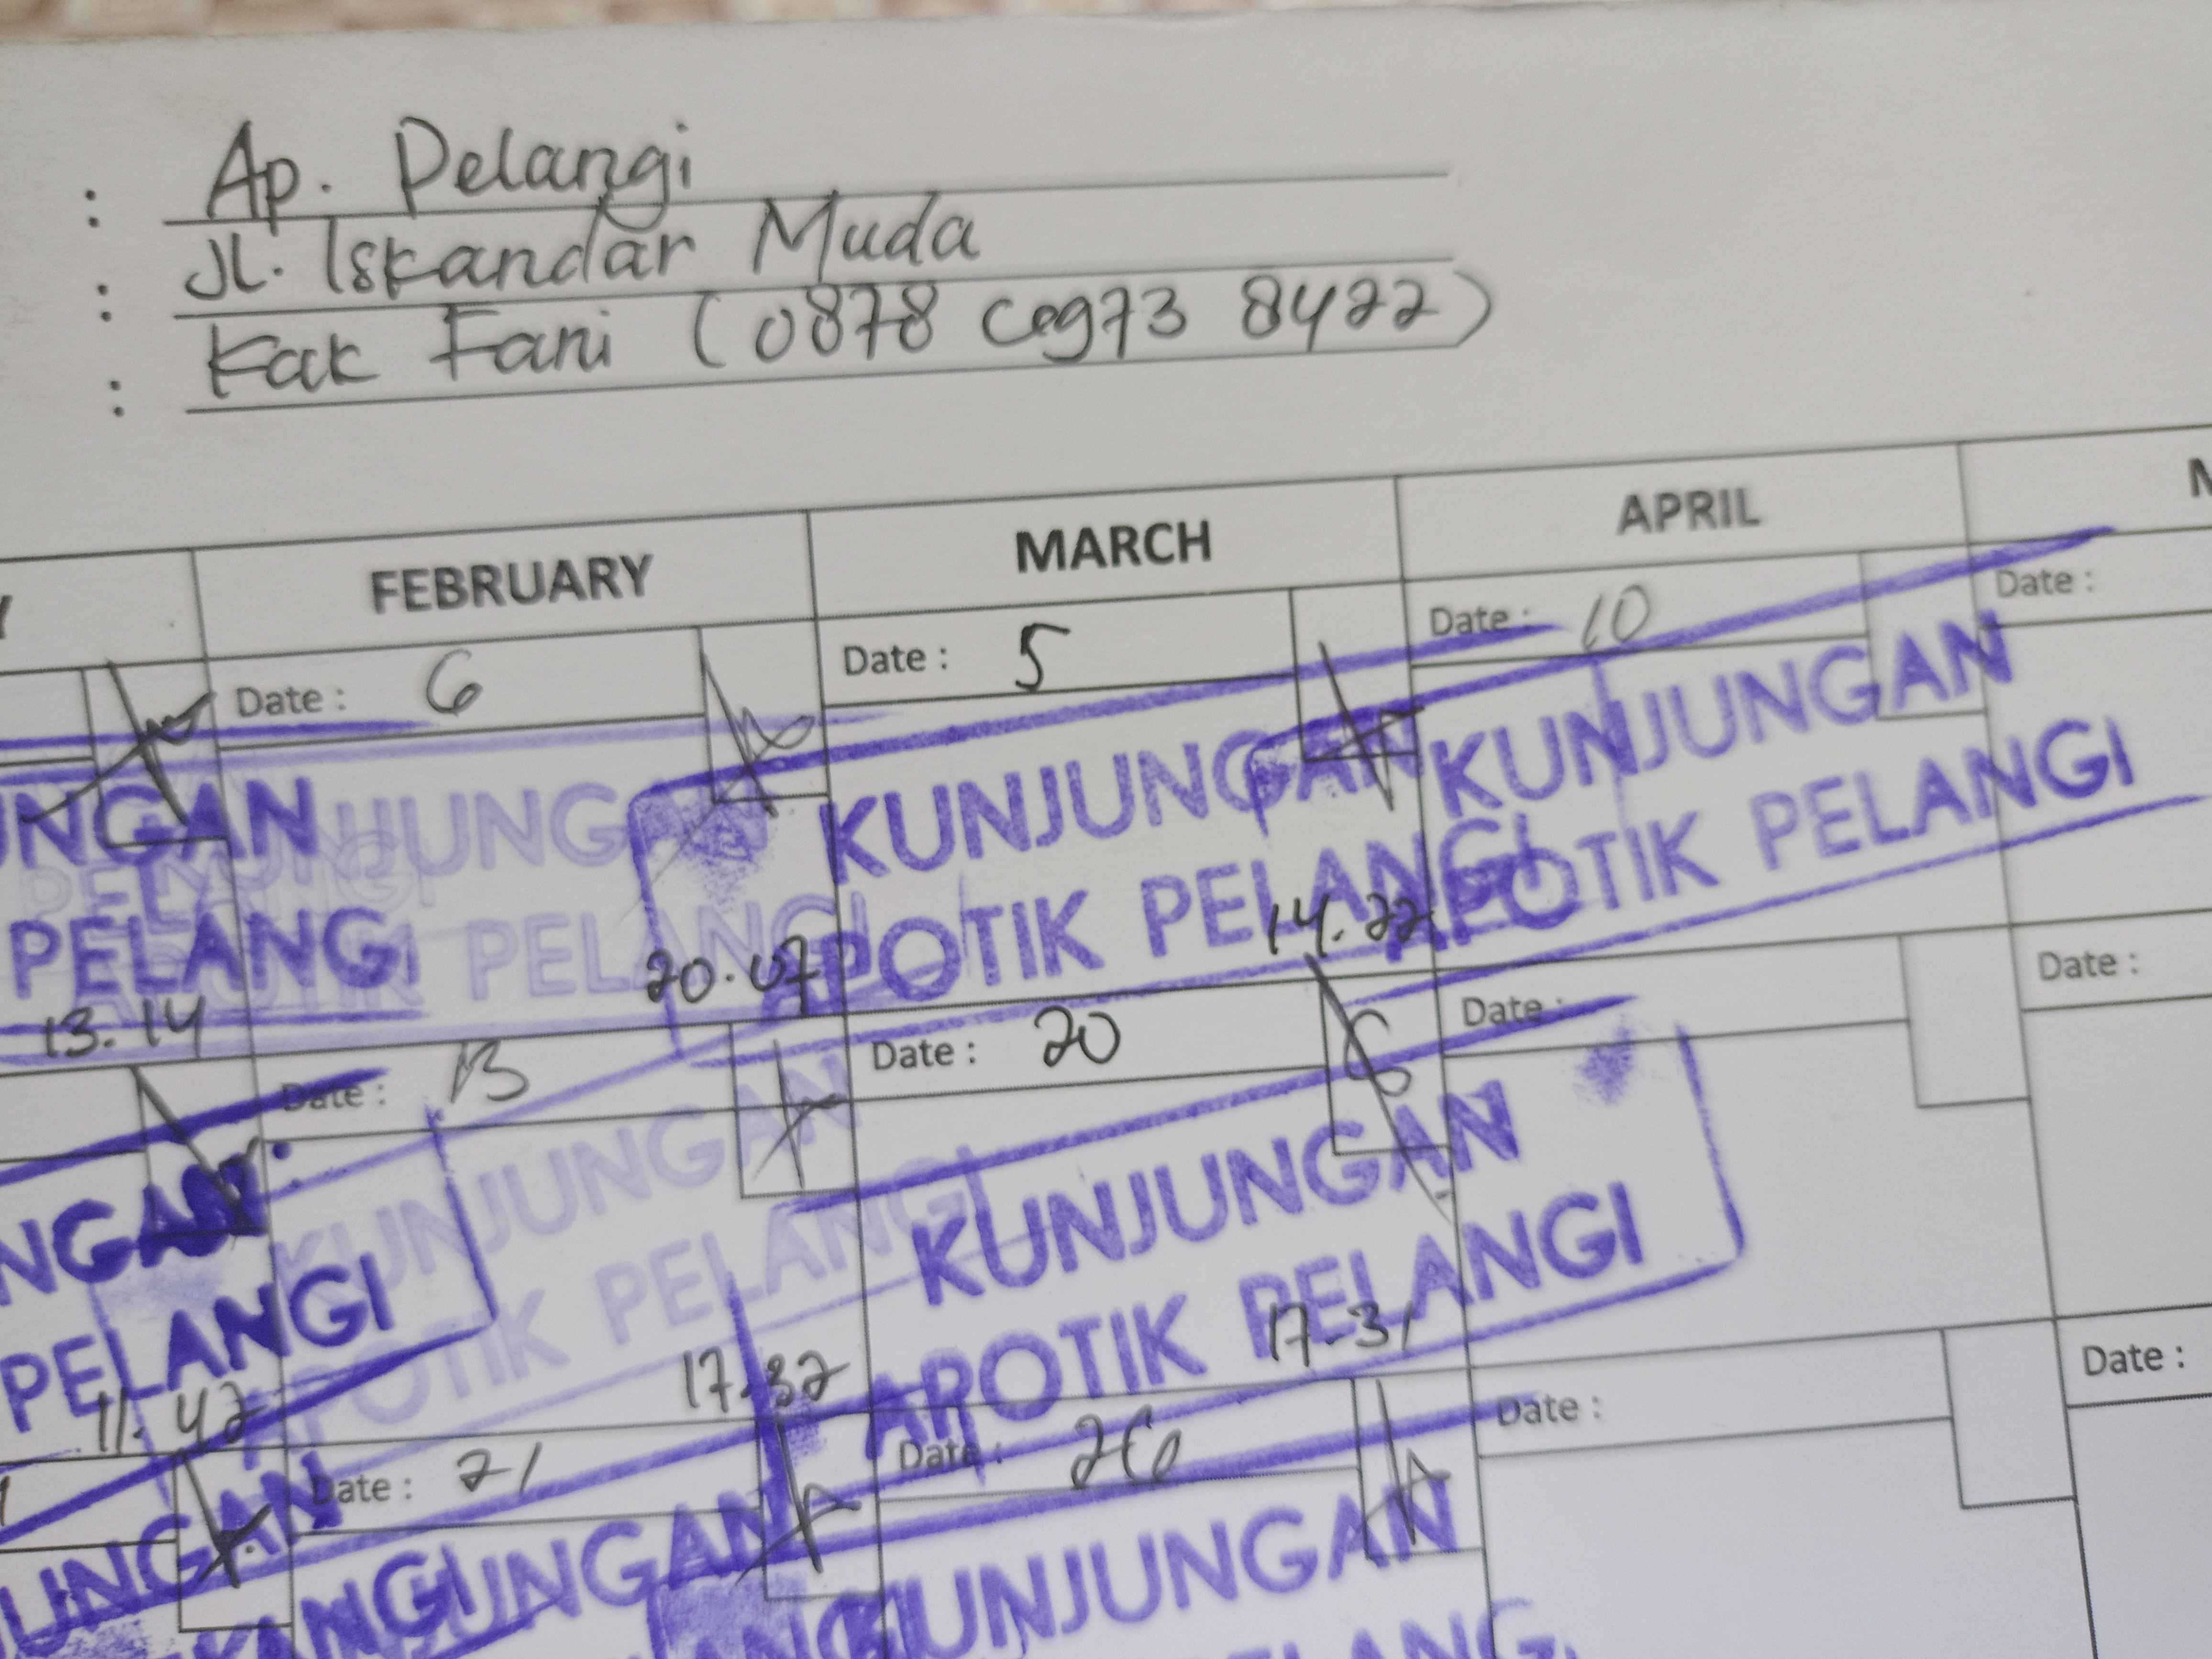 : Ap. Pelangi
: Jl. Iskandar Muda
: Kak Fani (0878 6973 8422)
FEBRUARY MARCH APRIL
Date : 6
Date : 5
Date : 10
Date :
NGAN
KUNJUNGAN
KUNJUNGAN
KUNJUNGAN
PELANGI
PELANGI
APOTIK PELANGI
APOTIK PELANGI
13.14
20.07
14.22
Date : 13
Date : 20
Date :
Date :
NGAN
KUNJUNGAN
KUNJUNGAN
PELANGI
APOTIK PELANGI
APOTIK PELANGI
11.42
17.32
17-31
Date : 21
Date : 26
Date :
Date :
UNGAN
UNGAN
KUNJUNGAN